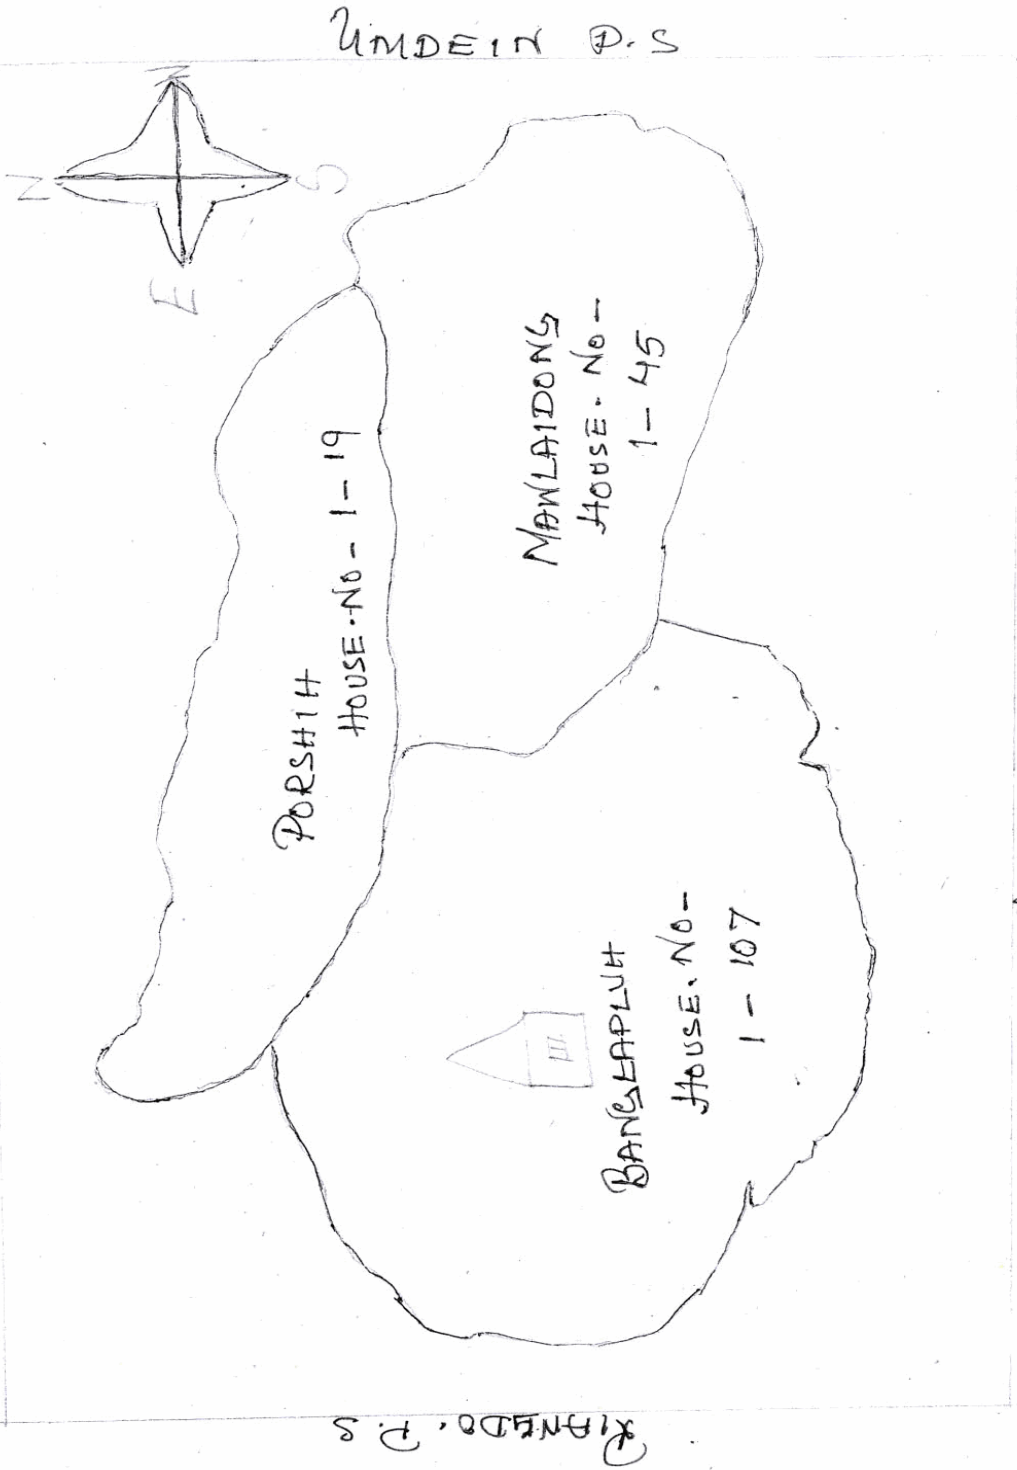 UMDEIN P.S
N
W
S
E
PORSHIH
HOUSE.NO- 1-19
MAWLAIDONG
HOUSE. NO-
1-45
BANGLAPLUH
HOUSE. NO-
1-107
III
RIANGDO. P.S